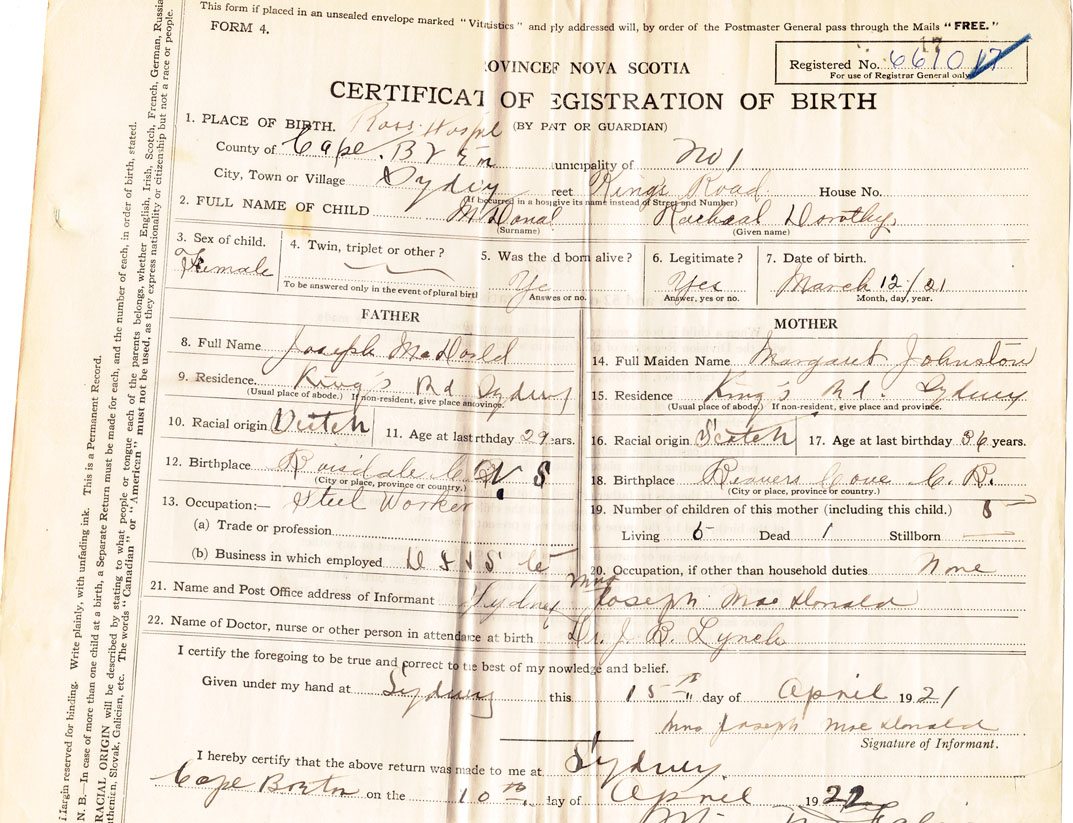 This form if placed in an unsealed envelope marked "Vitistics" and ply addressed will, by order of the Postmaster General pass through the Mails "FREE."
FORM 4.
17
Registered No. 6610 17
For use of Registrar General only
OVINCEF NOVA SCOTIA
CERTIFICAT OF EGISTRATION OF BIRTH
(BY PA NT OR GUARDIAN)
1. PLACE OF BIRTH. Ross Hospl
County of Cape. Br un unicipality of No 1
City, Town or Village Sydny reet King's Road House No.
(If occurred in a hos give its name instead of Street and Number)
2. FULL NAME OF CHILD McDonal Racheal Dorothy
(Surname) (Given name)
3. Sex of child. 4. Twin, triplet or other? 5. Was the d born alive? 6. Legitimate? 7. Date of birth.
Female Ye Yes March 12/21
To be answered only in the event of plural birt Answes or no. Answer, yes or no. Month, day, year.
FATHER MOTHER
8. Full Name Joseph MacDold
14. Full Maiden Name Margaret Johnston
9. Residence. King's Rd Sydny
15. Residence King's Rd. Sydney
(Usual place of abode.) If non-resident, give place an ovince.
(Usual place of abode.) If non-resident, give place and province.
10. Racial origin Dutch 11. Age at last rthday 29 ears.
16. Racial origin Scotch 17. Age at last birthday 36 years.
12. Birthplace Boisdale C N S
18. Birthplace Beavers Cove C. B.
(City or place, province or country.)
(City or place, province or country.)
13. Occupation:— Steel Worker
19. Number of children of this mother (including this child.)
(a) Trade or profession
Living 5 Dead 1 Stillborn
(b) Business in which employed D I & S Co
20. Occupation, if other than household duties None
21. Name and Post Office address of Informant Sydney Mrs Joseph MacDonald
22. Name of Doctor, nurse or other person in attendance at birth Dr. J. B. Lynch
I certify the foregoing to be true and correct to the best of my nowledge and belief.
Given under my hand at Sydney this 15th day of April 1921
Mrs Joseph MacDonald
Signature of Informant.
I hereby certify that the above return was made to me at Sydney.
Cape Breton on the 10th day of April 192
largin reserved for binding. Write plainly, with unfading ink. This is a Permanent Record.
N. B.—In case of more than one child at a birth, a Separate Return must be made for each, and the number of each, in order of birth, stated.
RACIAL ORIGIN will be described by stating to what people or tongue each of the parents belongs, whether English, Irish, Scotch, French, German, Russia
thenian, Slovak, Galician, etc. The words "Canadian" or "American" must not be used, as they express nationality or citizenship but not a race or people.